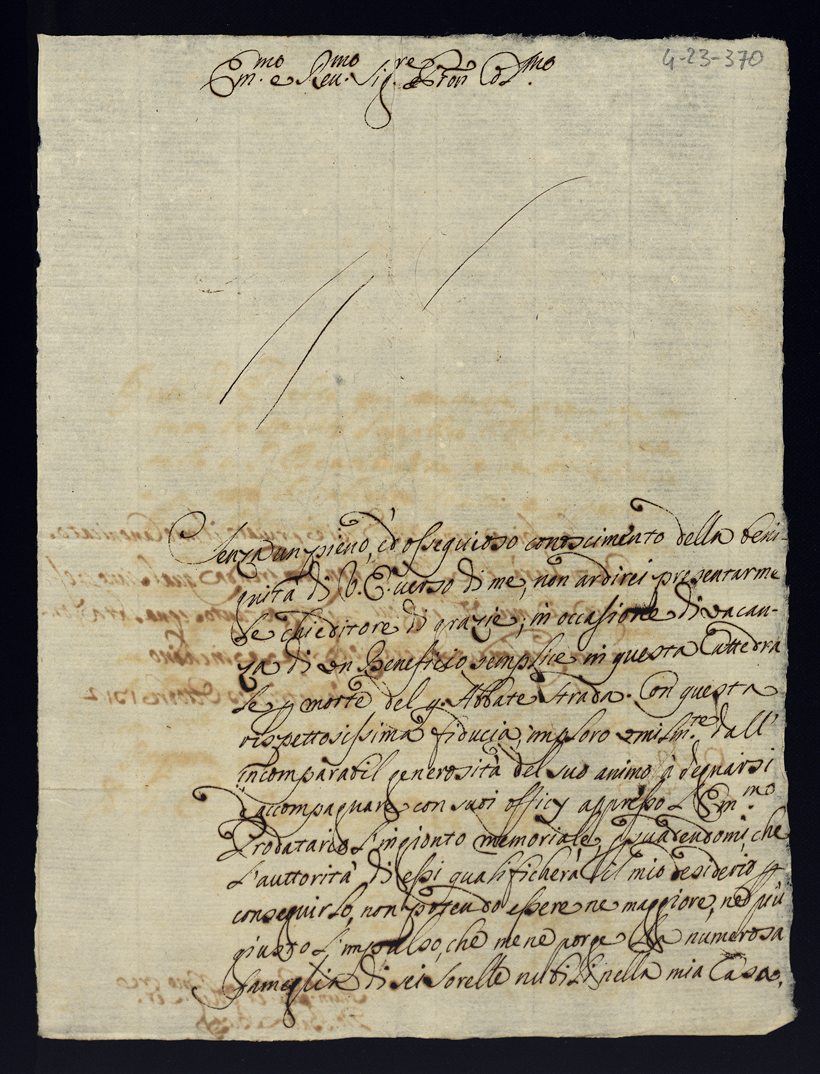 4-23-370
Em.mo e Rev.mo Sig.re e Pron Col.mo
Senza un pieno, ed ossequioso conoscimento della beni-
gnità di V. E. verso di me, non ardirei presentarme
le chieditore di grazie, in occasione di vacan-
za di un Beneficio semplice in questa Cattedra
le p morte del q. Abbate Strada. Con questa
rispettosissima fiducia, imploro umilm.te dall'
incomparabil generosità del suo animo à degnarsi
d'accompagnare con suoi officij appresso l'Em.mo
Prodatario l'ingionto memoriale, psuadendomi, che
l'auttorità di essi qualificherà il mio desiderio p
conseguirlo, non potendo essere ne maggiore, ned più
giusto l'impulso, che me ne porge la numerosa
famiglia di sei sorelle nubili nella mia Casa,